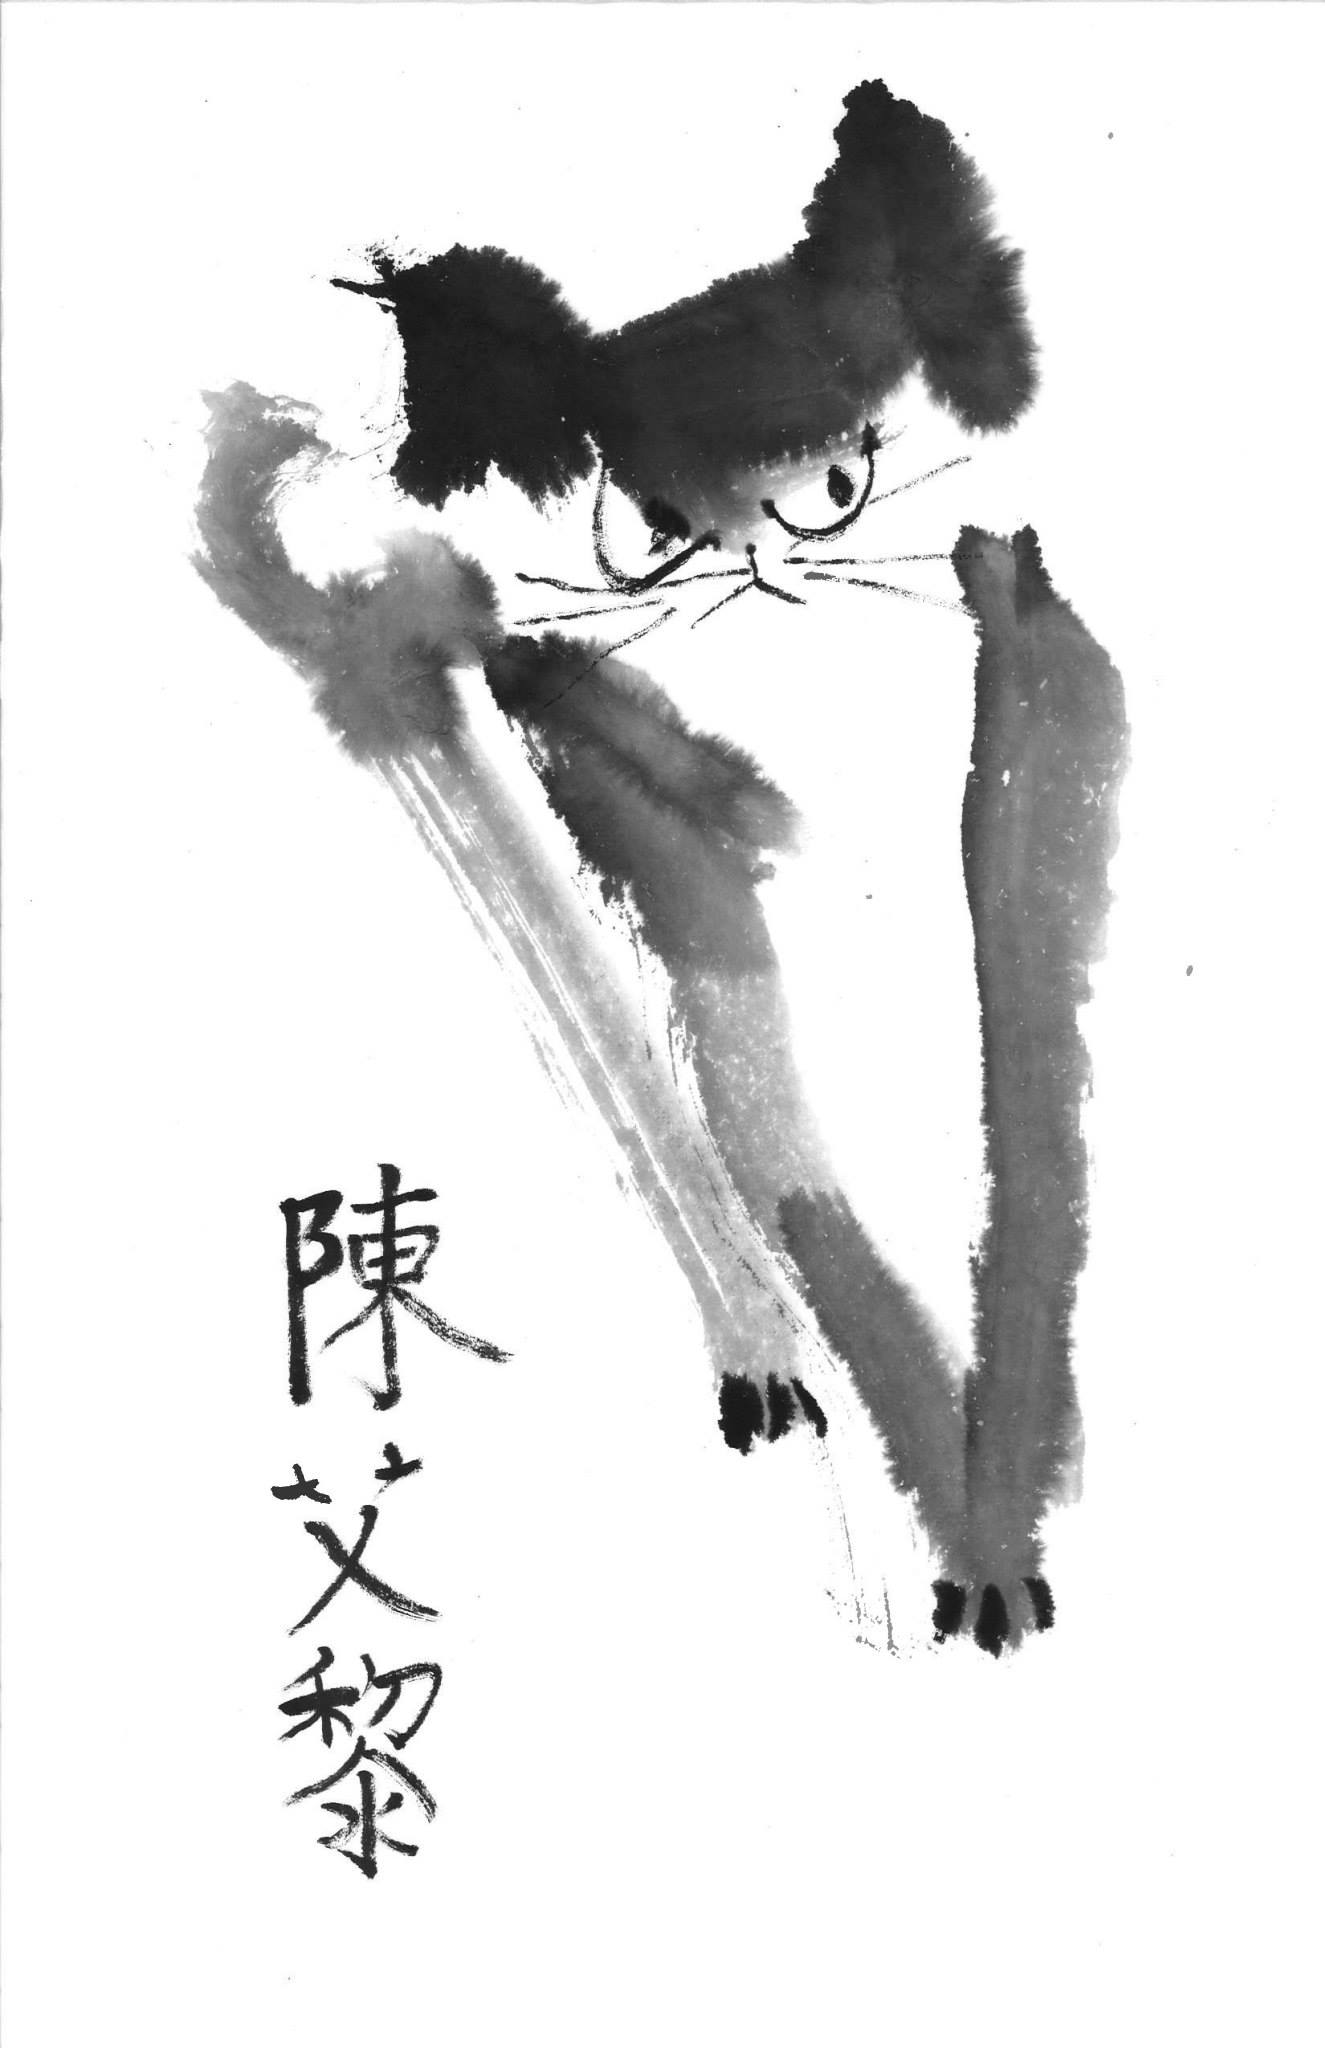 陳艾黎